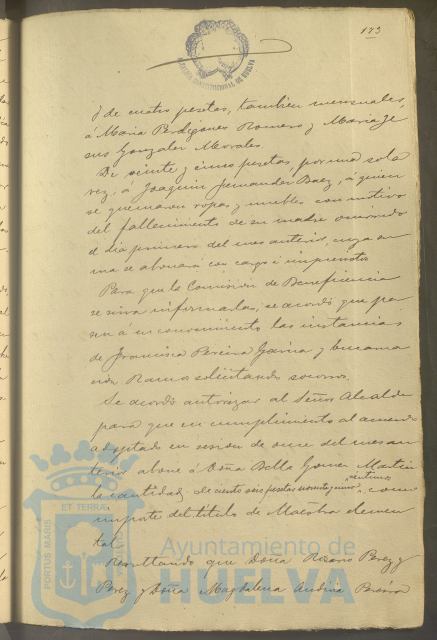 173
ALCALDIA CONSTITUCIONAL DE HUELVA
y de cuatro pesetas, tambien mensuales,
á Maria Perdigones Romero y Maria Je
sus Gonzalez Morales.
De veinte y cinco pesetas, por una sola
vez, á Joaquin Fernandez Baez, á quien
se quemaron ropas y muebles con motivo
del fallecimiento de su madre ocurrido
el dia primero del mes anterior, cuya su
ma se abonará con cargo á imprevistos
Para que la Comision de Beneficencia
se sirva informarlas, se acordó que pa
sen á su conocimiento las instancias
de Francisca Pereira Garcia y
Ramos solicitando socorros.
Se acordó autorizar al Señor Alcalde
para que en cumplimiento al acuerdo
adoptado en sesion de once del mes an
terior abone á Doña Bella Gomez Martin
la cantidad de ciento seis pesetas centimos como
importe del titulo de Maestra elemen
tal.
Resultando que Doña Rosario Perez y
Perez y Doña Magdalena
PORTUS MARIS ET TERRAE
Ayuntamiento de
HUELVA